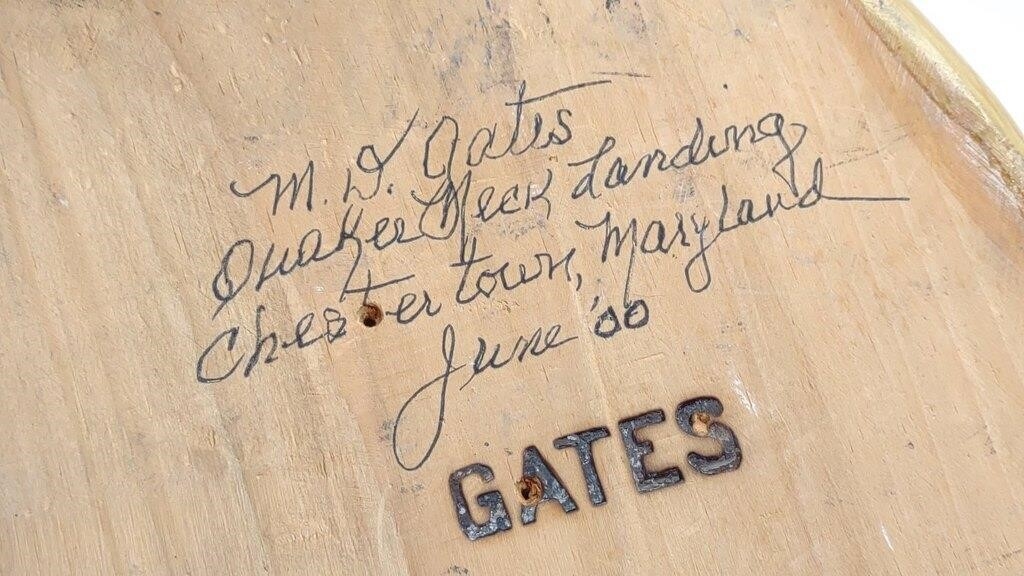 M. D. Gates
Quaker Neck Landing
Chestertown, Maryland
June '00
GATES